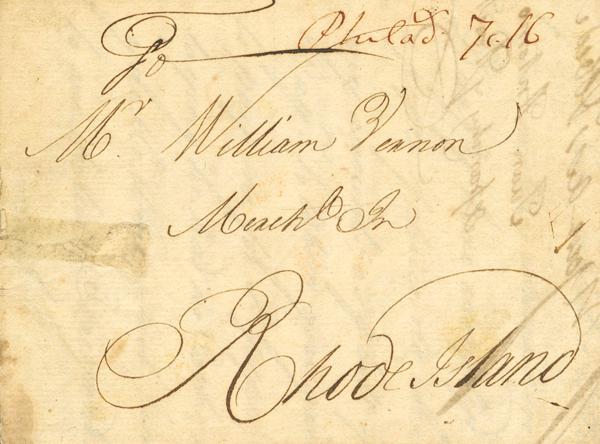 Philad. 7.16
To
Mr. William Vernon
Mercht. In
Rhode Island